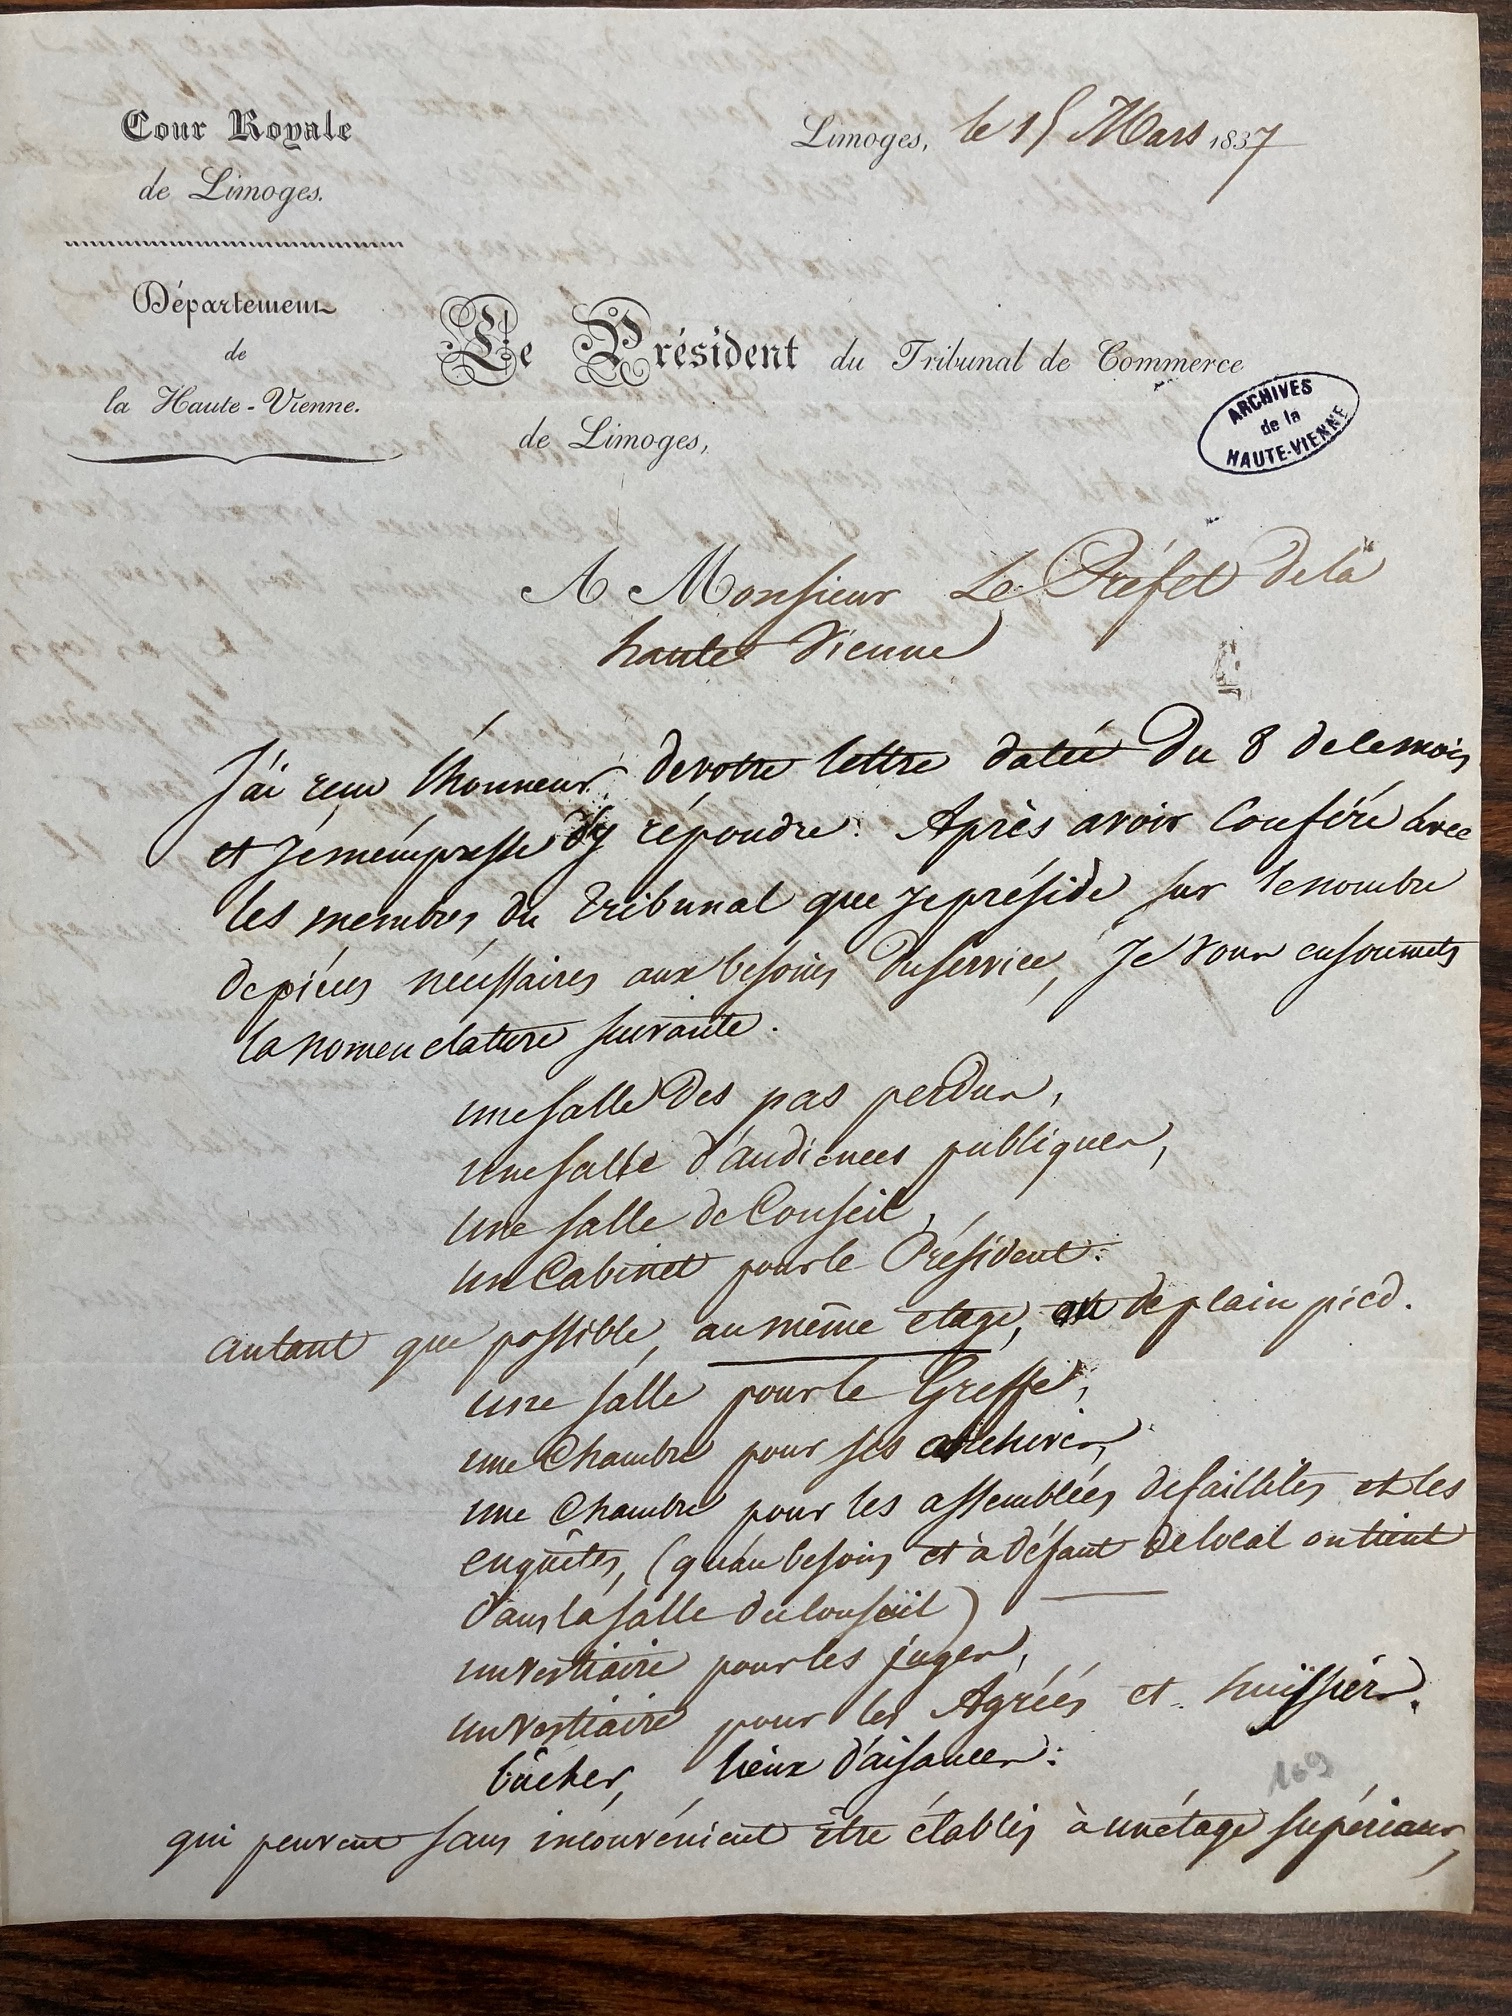 Cour Royale
de Limoges.
Département
de
la Haute-Vienne.
Limoges, le 15 Mars 1837
Le Président du Tribunal de Commerce
de Limoges,
ARCHIVES
de la
HAUTE-VIENNE
A Monsieur Le Préfet de la
haute Vienne
J'ai reçu l'honneur de votre lettre datée du 8 de ce mois
et je m'émpresse d'y répondre. Après avoir Conféré avec
les membres du Tribunal que je préside sur le nombre
de piéces nécessaires aux besoins du service, Je vous en soumets
la nomenclature suivante.
une salle des pas perdus,
une salle d'audiences publiques,
une salle de Conseil,
un Cabinet pour le Président:
autant que possible, au même etage, de plain pied.
une salle pour le Greffe,
une Chambre pour ses archives,
une Chambre pour les assemblées de faillites et les
enquêtes, (qu'au besoin et à défaut de local on tient
dans la salle du Conseil)
un vestiaire pour les juges,
un vestiaire pour les Agréés et huissiers.
bûcher, lieux d'aisances:
169
qui peuvent sans inconvénient être établis à un étage supérieur,